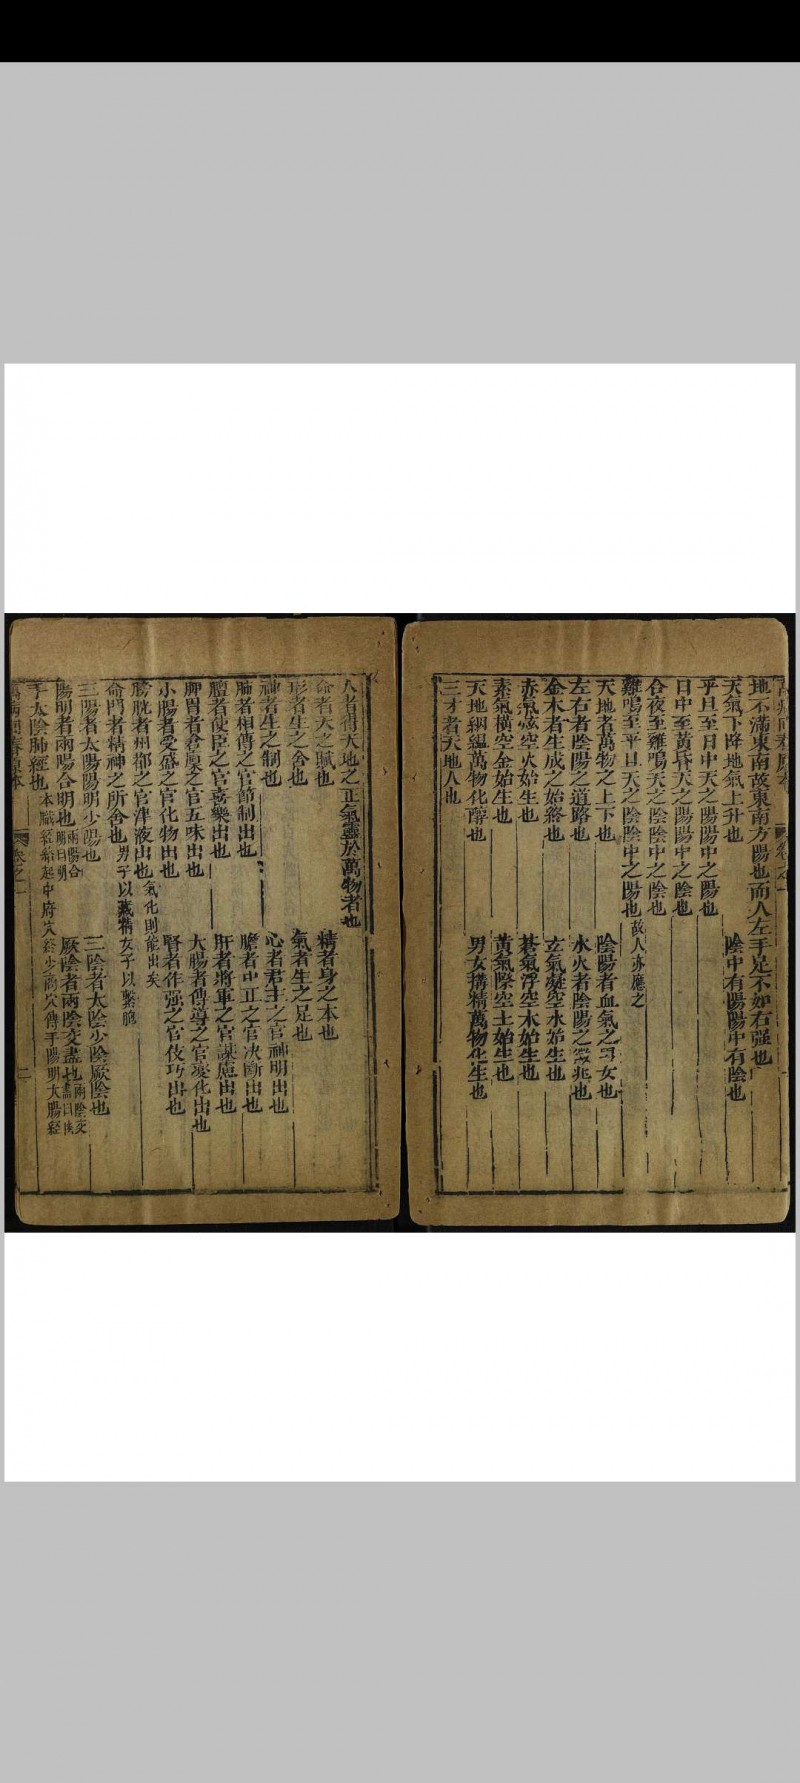 萬病回春原本 卷之一
地不滿東南故東南方陽也而人左手足不如右强也
天氣下降地氣上升也 陰中有陽陽中有陰也
平旦至日中天之陽陽中之陽也
日中至黃昏天之陽陽中之陰也
合夜至雞鳴天之陰陰中之陰也
雞鳴至平旦天之陰陰中之陽也故人亦應之
天地者萬物之上下也 陰陽者血氣之男女也
左右者陰陽之道路也 水火者陰陽之徵兆也
金木者生成之始終也 玄氣凝空水始生也
赤氣炫空火始生也 蒼氣浮空木始生也
素氣橫空金始生也 黃氣際空土始生也
天地絪縕萬物化醇也 男女構精萬物化生也
三才者天地人也
人者得天地之正氣靈於萬物者也
命者天之賦也 精者身之本也
形者生之舍也 氣者生之足也
神者生之制也 心者君主之官神明出也
肺者相傳之官節制出也 膽者中正之官決斷出也
膻者使臣之官喜樂出也 肝者將軍之官謀慮出也
脾胃者倉廩之官五味出也 大腸者傳導之官變化出也
小腸者受盛之官化物出也 腎者作强之官伎巧出也
膀胱者州都之官津液出也氣化則能出矣
命門者精神之所舍也男子以藏精女子以繫胞
三陽者太陽陽明少陽也 三陰者太陰少陰厥陰也
陽明者兩陽合明也兩陽合明曰明 厥陰者兩陰交盡也兩陰交盡曰幽
手太陰肺經也本臟經絡起中府穴終少商穴傳手陽明大腸經
萬病回春原本 卷之一 二